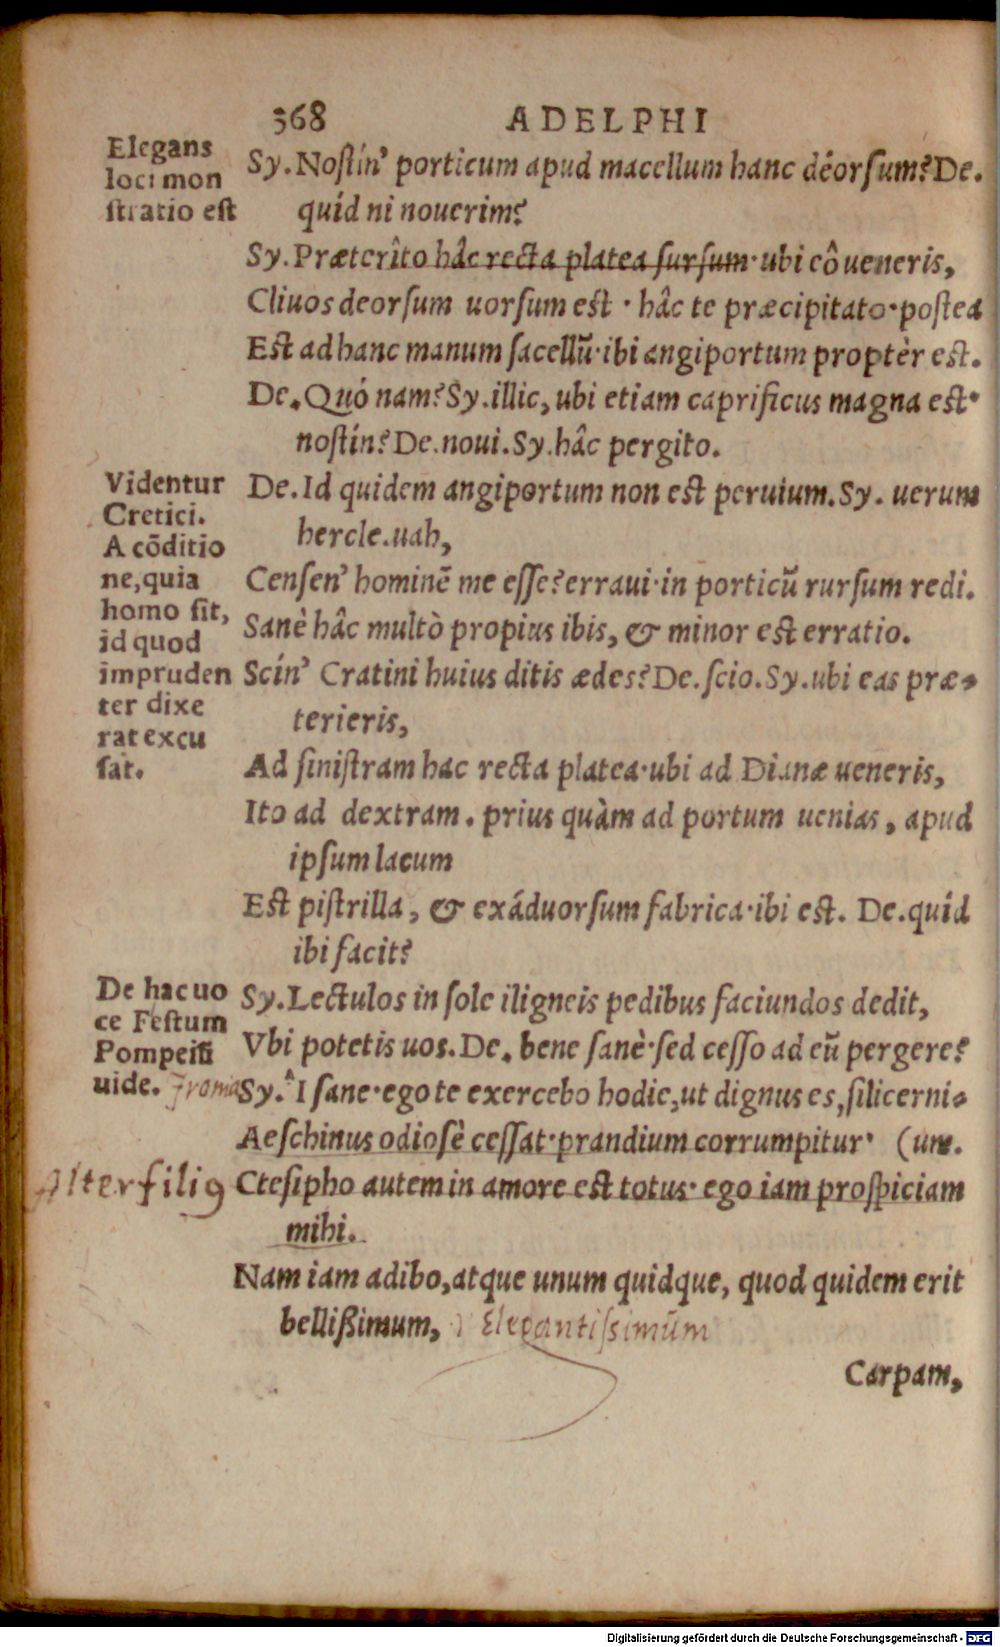 368 ADELPHI
Elegans
loci mon
stratio est
Sy. Nostín' porticum apud macellum hanc deorsum? De.
quíd ni nouerim?
Sy. Præterîto hâc recta platea sursum·ubi cô ueneris,
Cliuos deorsum uorsum est · hâc te præcipitato·postea
Est ad hanc manum sacellũ·ibi angiportum proptèr est.
De. Quó nam? Sy. illic, ubi etiam caprificus magna est·
nostín? De. noui. Sy. hâc pergito.
Videntur
Cretici.
A cõditio
ne, quia
homo sit,
id quod
impruden
ter dixe
rat excu
sat.
De. Id quidem angiportum non est peruium. Sy. uerum
hercle. uah,
Censen' hominẽ me esse? erraui·in porticũ rursum redi.
Sanè hâc multò propius ibis, & minor est erratio.
Scín' Cratini huius ditis ædes? De. scio. Sy. ubi eas præ-
terieris,
Ad sinistram hac recta platea·ubi ad Dianæ ueneris,
Ito ad dextram. prius quàm ad portum uenias, apud
ipsum lacum
Est pistrilla, & exáduorsum fabrica·ibi est. De. quíd
ibi facit?
De hac uo
ce Festum
Pompeiũ
uide. Ironia
Sy. Lectulos in sole iligneis pedibus faciundos dedit,
Vbi potetis uos. De. bene sanè·sed cesso ad eũ pergere?
Sy. I sane·ego te exercebo hodie, ut dignus es, silicerni-
Aeschinus odiosè cessat·prandium corrumpitur· (um.
Alter filiꝰ
Ctesipho autem in amore est totus·ego iam prospiciam
mihi.
Nam iam adibo, atque unum quidque, quod quidem erit
bellißimum, Elegantissimũm
Carpam,
Digitalisierung gefördert durch die Deutsche Forschungsgemeinschaft - DFG